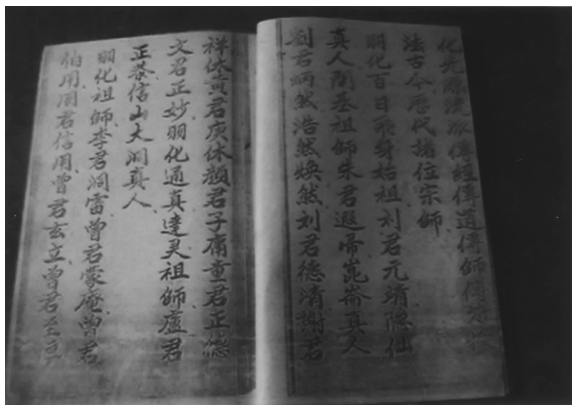 化派傳經傳道傳師傳
法古今歷代諸位宗師
羽化百日飛身始祖刘君元靖隱仙
真人祖師朱君遐帝崑崙真人
劉君炳然浩然煥然刘君德清謝君
祥休黃君庚休顏君子庸童君正總
文君正妙羽化通真達灵祖師盧君
正泰信山大洞真人
羽化祖師李君洞雷曾君蒙庵曾君
伯用周君信用曾君玄立曾君